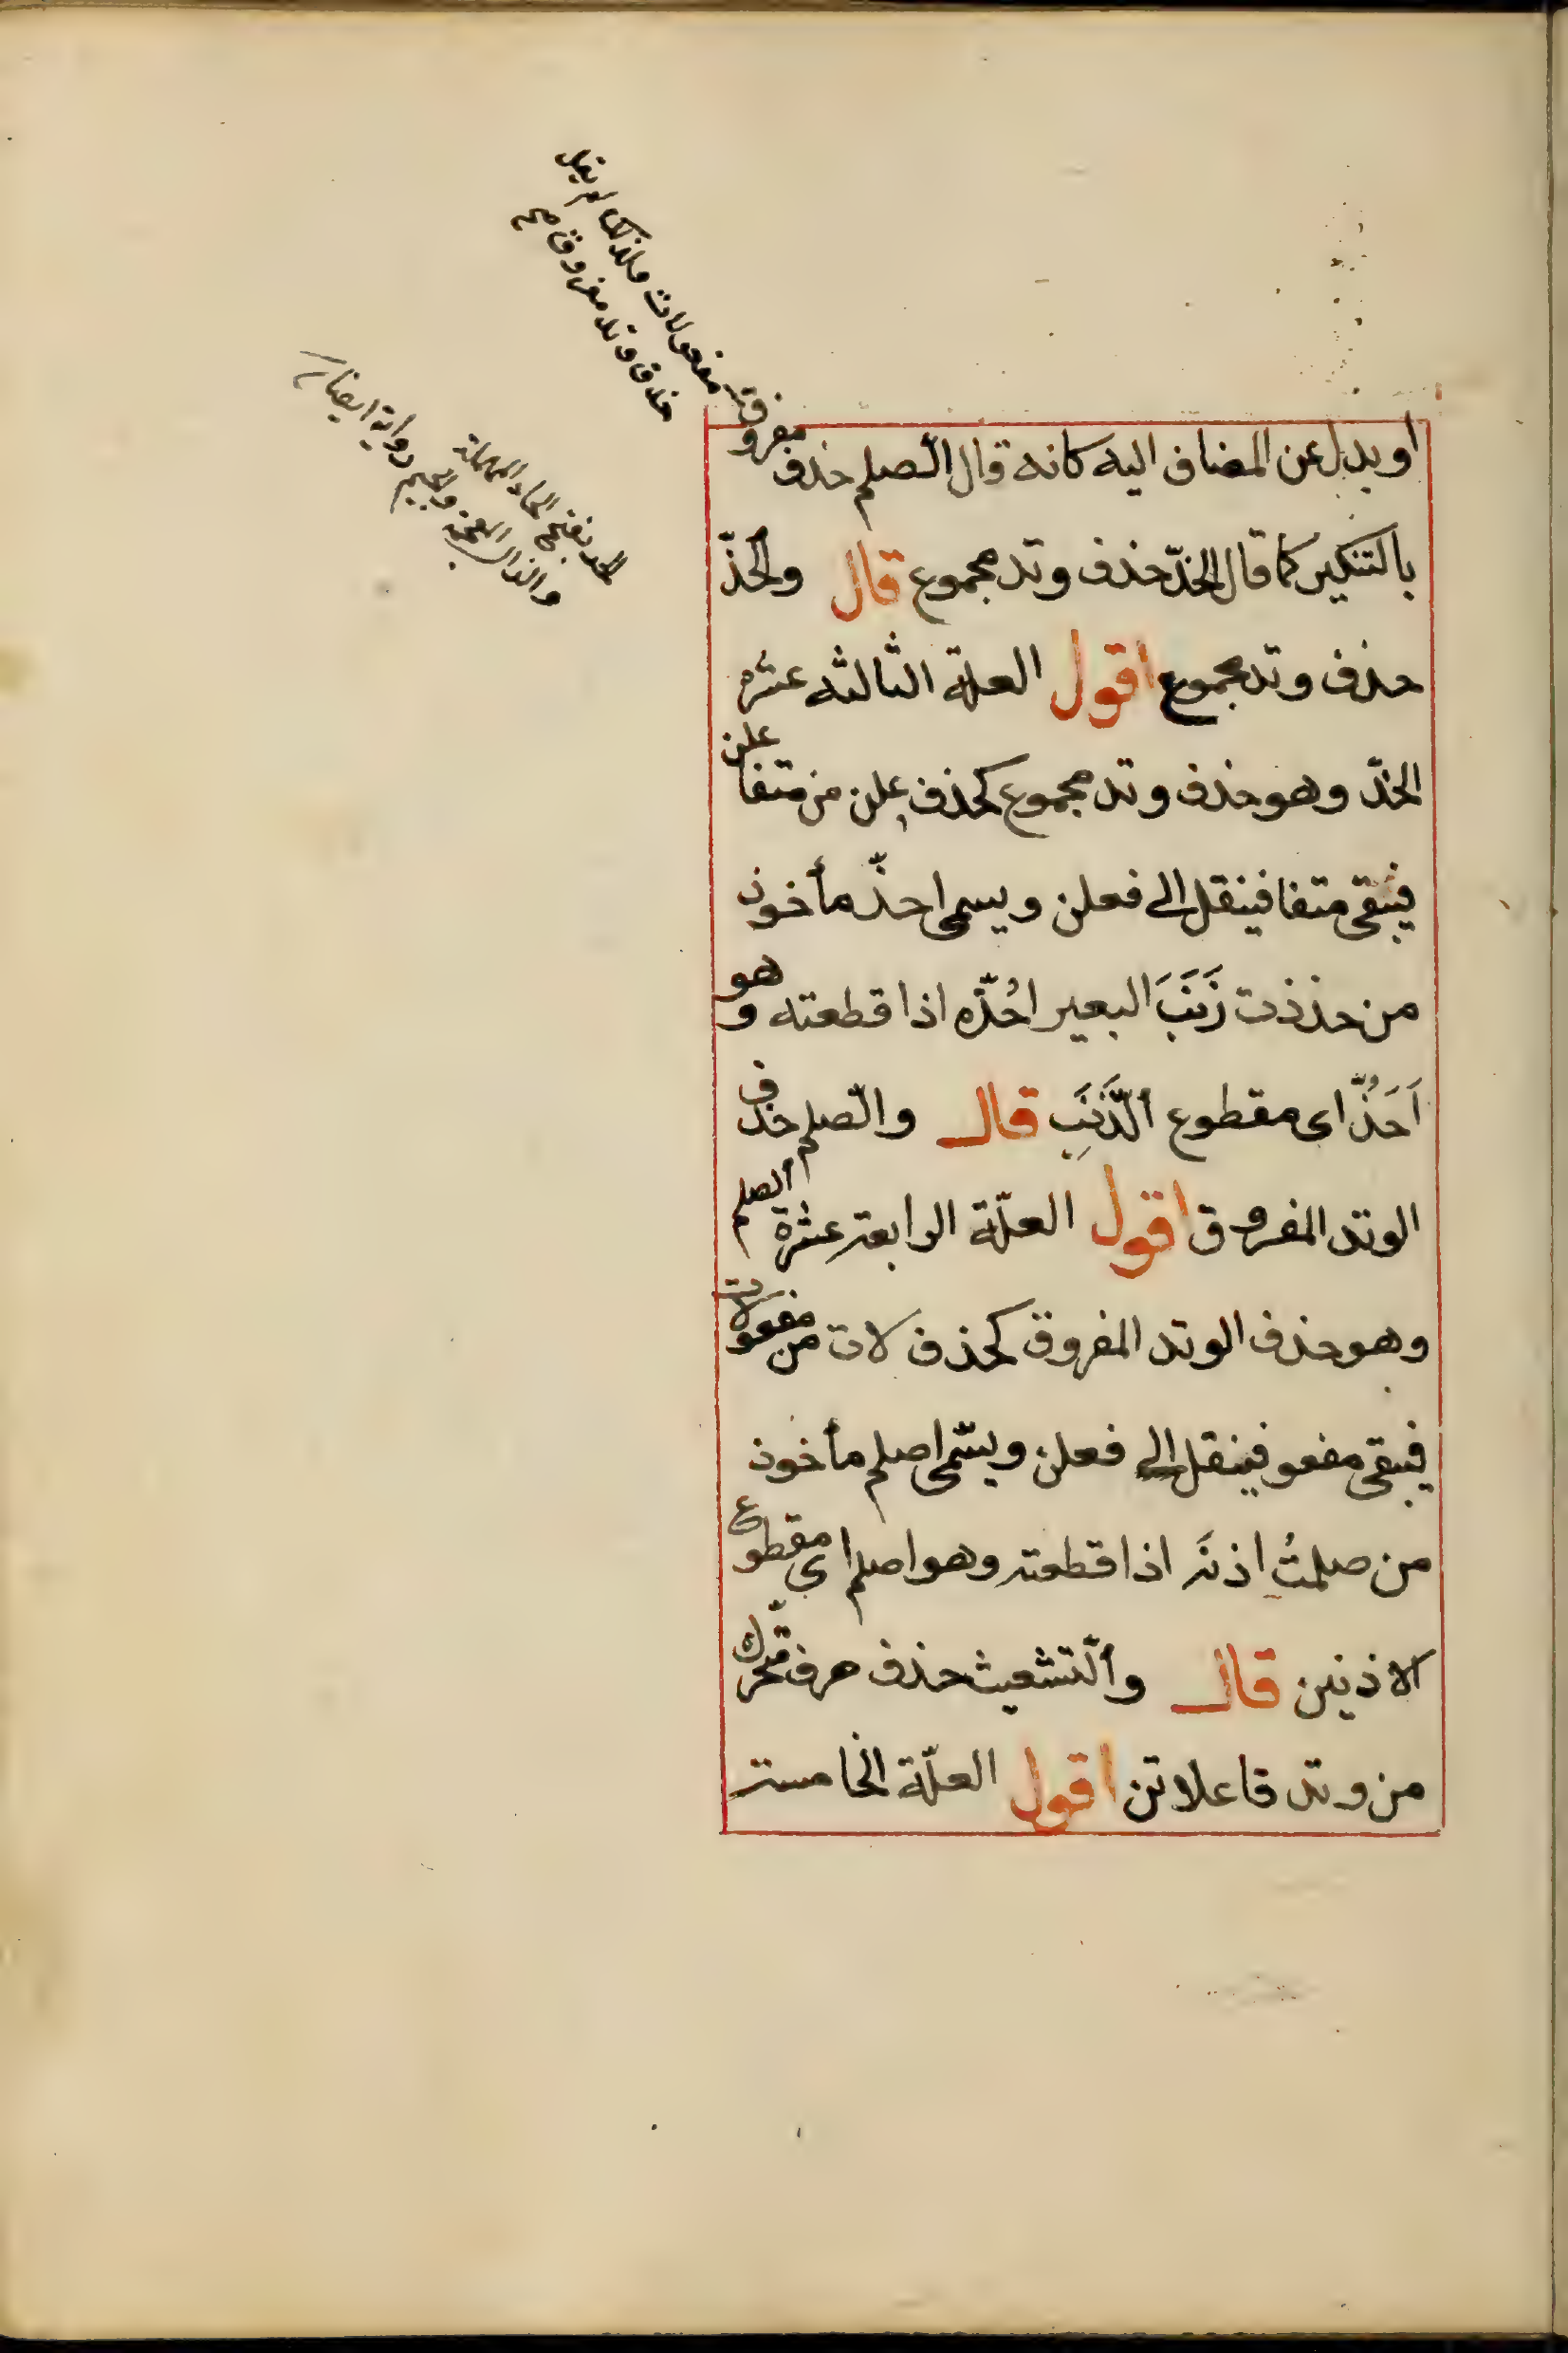 او بدل عن المضاف اليه كانه قال الصّلم حذف مفروقة
بالتنكير كما قال الحذّ حذف وتد مجموع قال والحَذّ
حذف وتد مجموع اقول العلة الثالثه عشره
الحذّ وهو حذف وتد مجموع كحذف علن من متفاعلن
فيبقى متفا فينقل الى فعلن ويسمى احذّ مأخوذ
من حذذت زَنَبَ البعير احُذّه اذا قطعته وهو
اَحَذُّ اى مقطوع الذَّنَبِ قال والصّلم حذف
الوتد المفروق اقول العلّة الرابعة عشرة الصلم
وهو حذف الوتد المفروق كحذف لات من مفعولات
فيبقى مفعو فينقل الى فعلن ويسّمى اصلم مأخوذ
من صلمتُ اذنَه اذا قطعته وهو اصلم اى مقطوع
الاذنين قال والتّشعيث حذف حرف متحرّك
من وتد فاعلاتن اقول العلّة الخامسة
مفعولات ولذلك لم يقل
حذف وتد مفروق صح
الحذ بفتح الحاء المهملة
والذال المعجمة والجيم رواية ايضا